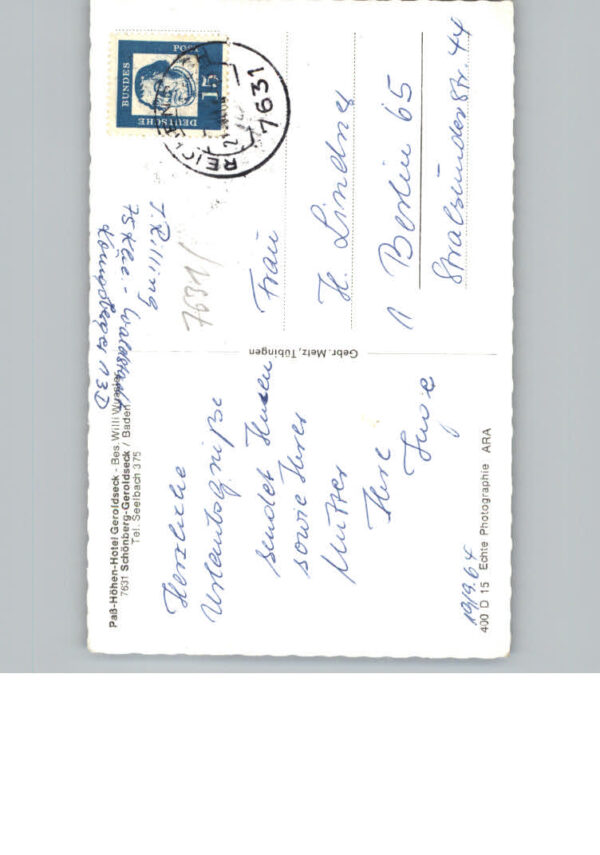 Paß-Höhen-Hotel Geroldseck - Bes. Willi Wurster
7631 Schönberg-Geroldseck / Baden
Tel. Seelbach 375
Herzliche
Urlaubsgrüße
sendet Ihnen
sowie Ihrer
Mutter
Ihre
Inge
19/9.64
400 D 15 Echte Photographie ARA
Gebr. Metz, Tübingen
DEUTSCHE BUNDESPOST
15
7631
J. Rilling
75 Klhe - Waldstadt
Königsberger 13D
7631/
Frau
H. Lindner
1 Berlin 65
Stralsunder Str. 44